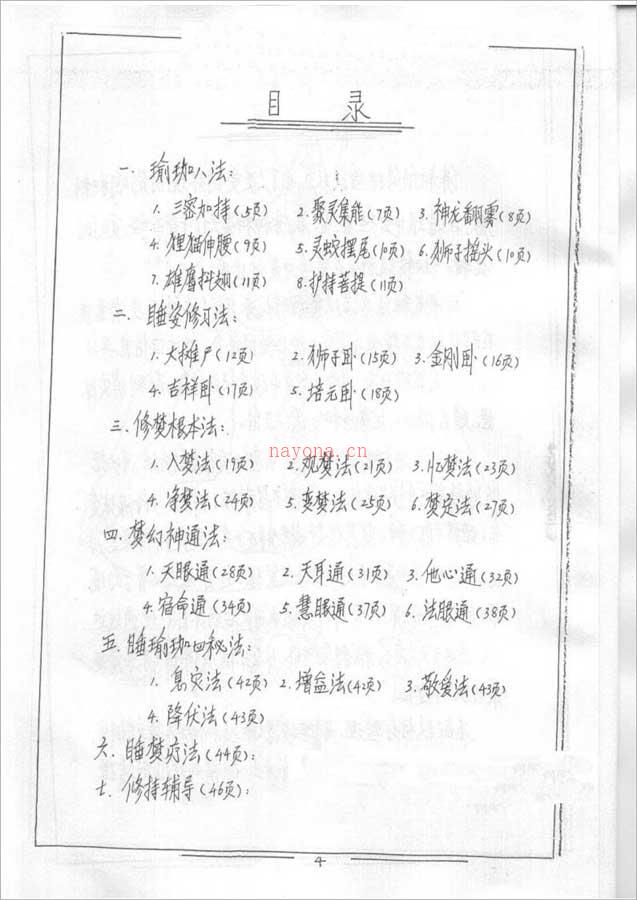 目 录
一. 瑜珈八法:
1. 三密加持(5页) 2. 聚灵集能(7页) 3. 神龙翻云(8页)
4. 狸猫伸腰(9页) 5. 灵蛇摆尾(10页) 6. 狮子摇头(10页)
7. 雄鹰抖翅(11页) 8. 护持菩提(11页)
二. 睡姿修习法:
1. 大摊尸(12页) 2. 狮子卧(15页) 3. 金刚卧(16页)
4. 吉祥卧(17页) 5. 培元卧(18页)
三. 修梦根本法:
1. 入梦法(19页) 2. 观梦法(21页) 3. 忆梦法(23页)
nayona.cn
4. 净梦法(24页) 5. 变梦法(25页) 6. 梦定法(27页)
四. 梦幻神通法:
1. 天眼通(28页) 2. 天耳通(31页) 3. 他心通(32页)
4. 宿命通(34页) 5. 慧眼通(37页) 6. 法眼通(38页)
五. 睡瑜珈四秘法:
1. 息灾法(42页) 2. 增益法(42页) 3. 敬爱法(43页)
4. 降伏法(43页)
六. 睡梦疗法(44页):
七. 修持辅导(46页):
4